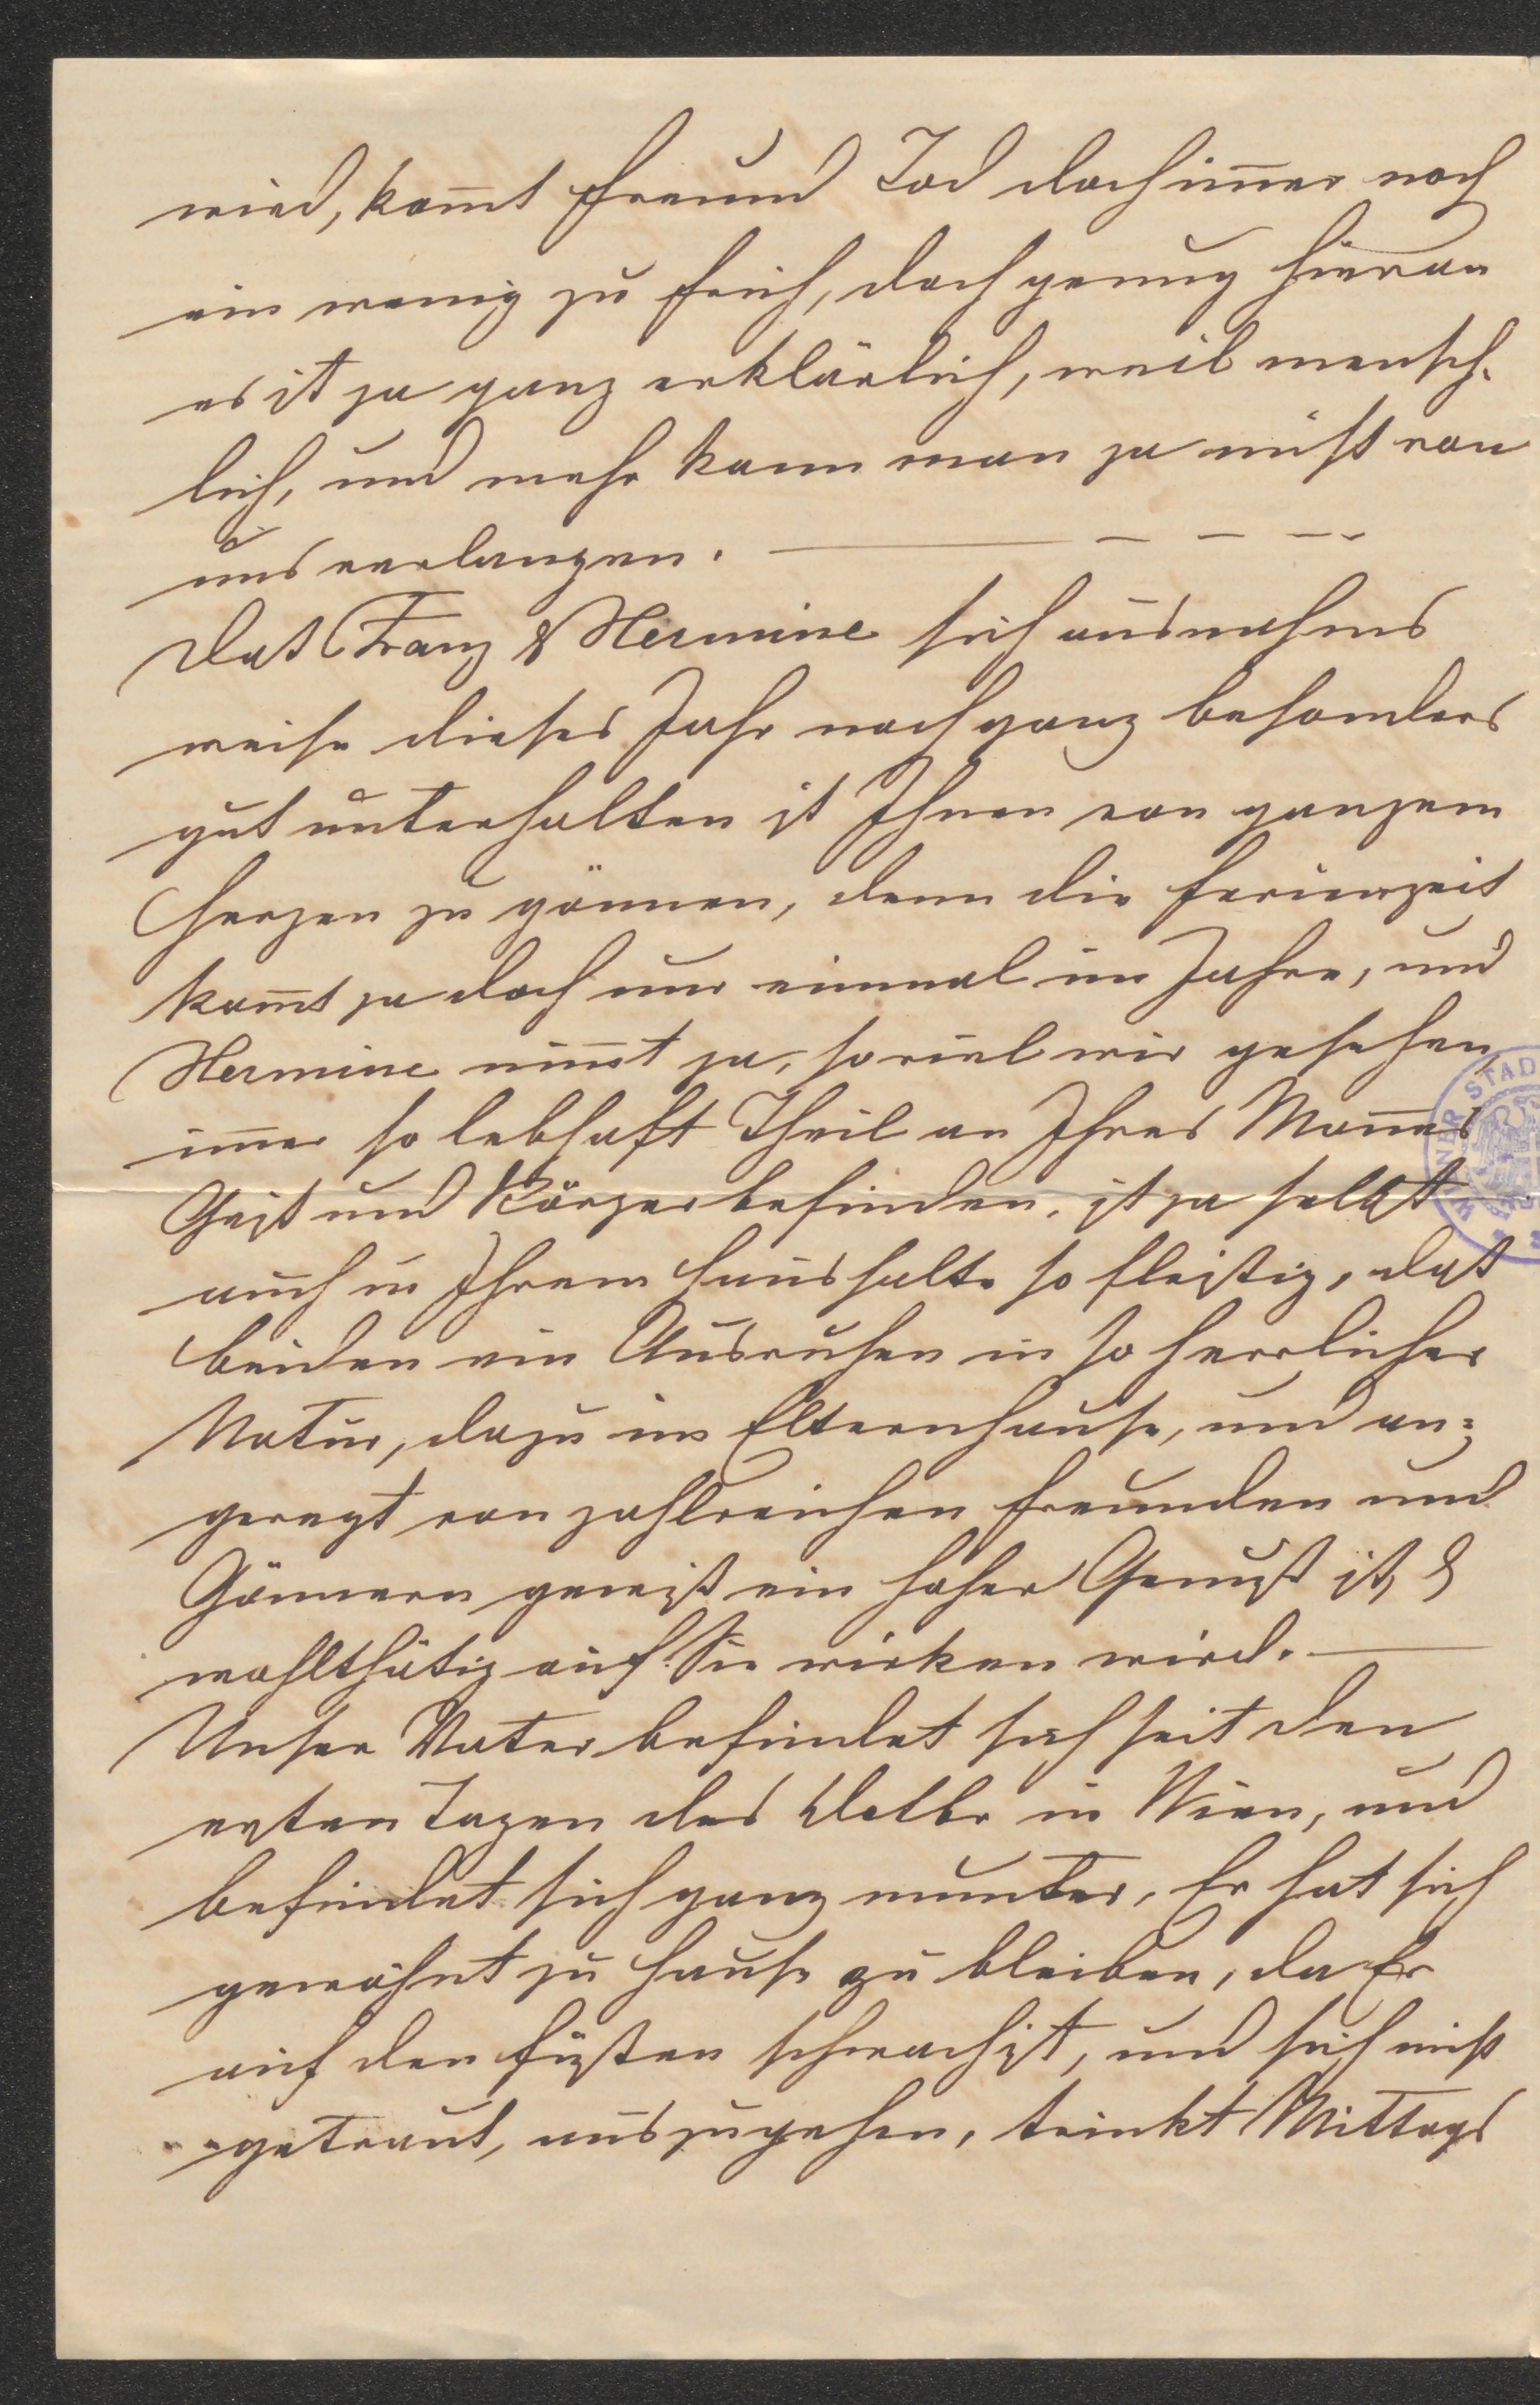 wird, kom̅t Freund Tod doch im̅er noch
ein wenig zu früh, doch genug hievon
es ist ja ganz erklärlich, weil mensch-
lich, und mehr kann man ja nicht von
uns verlangen. — — — —
Daß Franz & Hermine sich ausnahms
weise dieses Jahr noch ganz besonders
gut unterhalten ist Ihnen von ganzem
Herzen zu gönnen, denn die Ferienzeit
kom̅t ja doch nur einmal im Jahre, und
Hermine nim̅t ja, soviel wir gesehen,
im̅er so lebhaft Theil an Ihres Man̅es
Geist und Körperbefinden, ist ja selbst
auch in Ihrem Haushalte so fleißig, daß
beiden ein Ausruhen in so herrlicher
Natur, dazu im Elternhause, und an=
geregt von zahlreichen Freunden und
Gönnern gewiß ein hoher Genuß ist, &
wohlthätig auf Sie wirken wird. —
Unser Vater befindet sich seit den
ersten Tagen des in Wien, und
befindet sich ganz munter, Er hat sich
gewöhnt zu Hause zu bleiben, da Er
auf den Füßen schwach ist, und sich nicht
getraut, auszugehen, trinkt Mittags
WIENER STAD